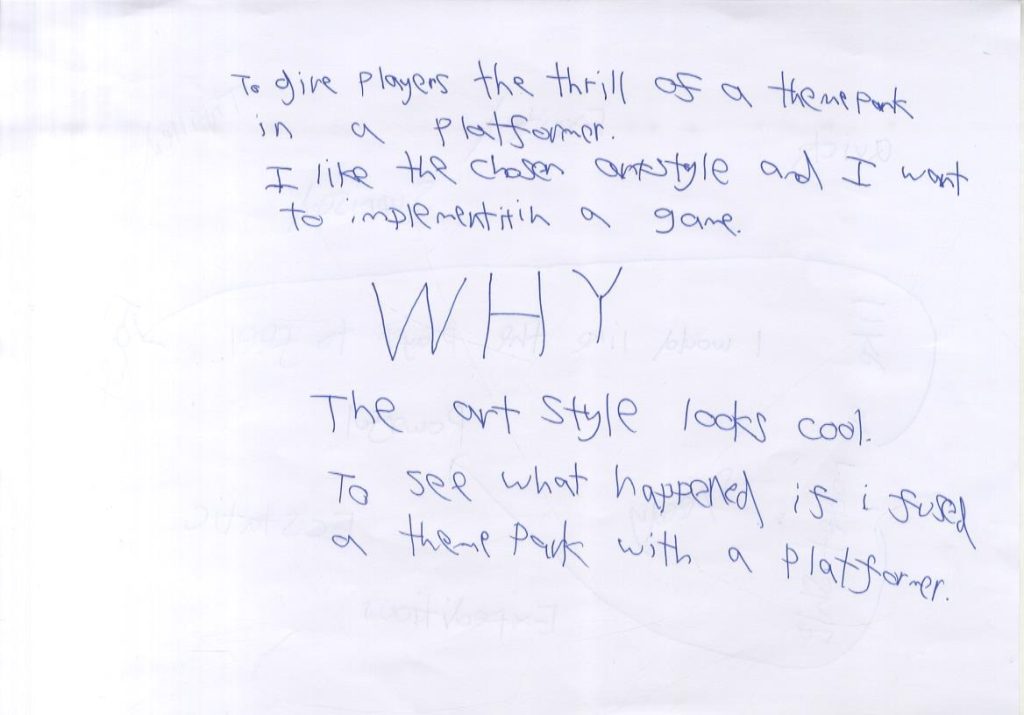 To give players the thrill of a theme park
in a platformer.
I like the chosen artstyle and I want
to implement it in a game.
WHY
The art style looks cool.
To see what happened if i fused
a theme park with a platformer.